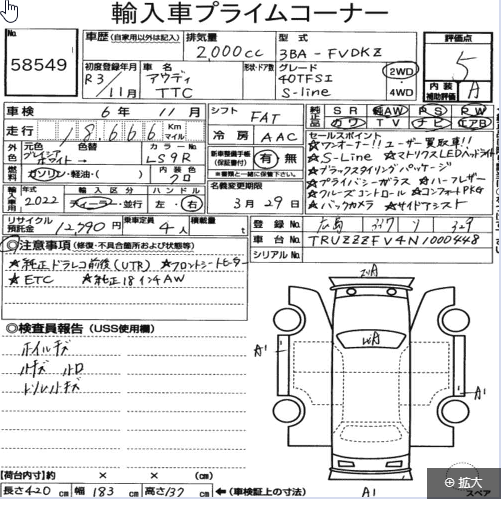 輸入車プライムコーナー
No.
58549
車歴 (自家用以外は記入)
排気量
2,000cc
型式
3BA-FVDKZ
評価点
5
初度登録年月
R3/11月
車名
アウディ
TTC
形状・ドア数
グレード
40TFSI
S-line
2WD
4WD
内装
補助評価
A
車検 6年 11月
シフト FAT
純正品 SR 純AW PS PW
カワ TV ナビ エアB
走行 18,666 Km マイル
冷房 AAC
外色 元色 グレイシアホワイト→ 色替
カラーNo. LS9R
新車整備手帳(保証書) 有・無
※書類と一緒に保管下さい。
セールスポイント
☆ワンオーナー!! ユーザー買取車!!
☆S-Line ☆マトリクスLEDヘッドライト
☆ブラックスタイリングパッケージ
☆プライバシーガラス ☆バーフレザー
☆クルーズコントロール ☆コンフォートPKG
☆バックカメラ ☆サイドアシスト
燃料 ガソリン・軽油・( )
内装色 クロ
輸入車用 年式 2022
輸入区分 ディーラー・並行
ハンドル 左・右
名義変更期限
3月 29日
リサイクル預託金 12,790円
乗車定員 4人
積載量 t
登録No. 広島 337 ソ 329
車台No. TRUZZZFV4N1000448
シリアルNo.
◎注意事項 (修復・不具合箇所および状態等)
★純正ドラレコ前後(UTR) ★フロントシートヒーター
★ETC ★純正18インチAW
◎検査員報告 (USS使用欄)
ホイルキズ
A1
A1
A1
【荷台内寸】 × × (cm)
長さ420cm 幅183cm 高さ137cm ←(車検証上の寸法)
スペア
拡大